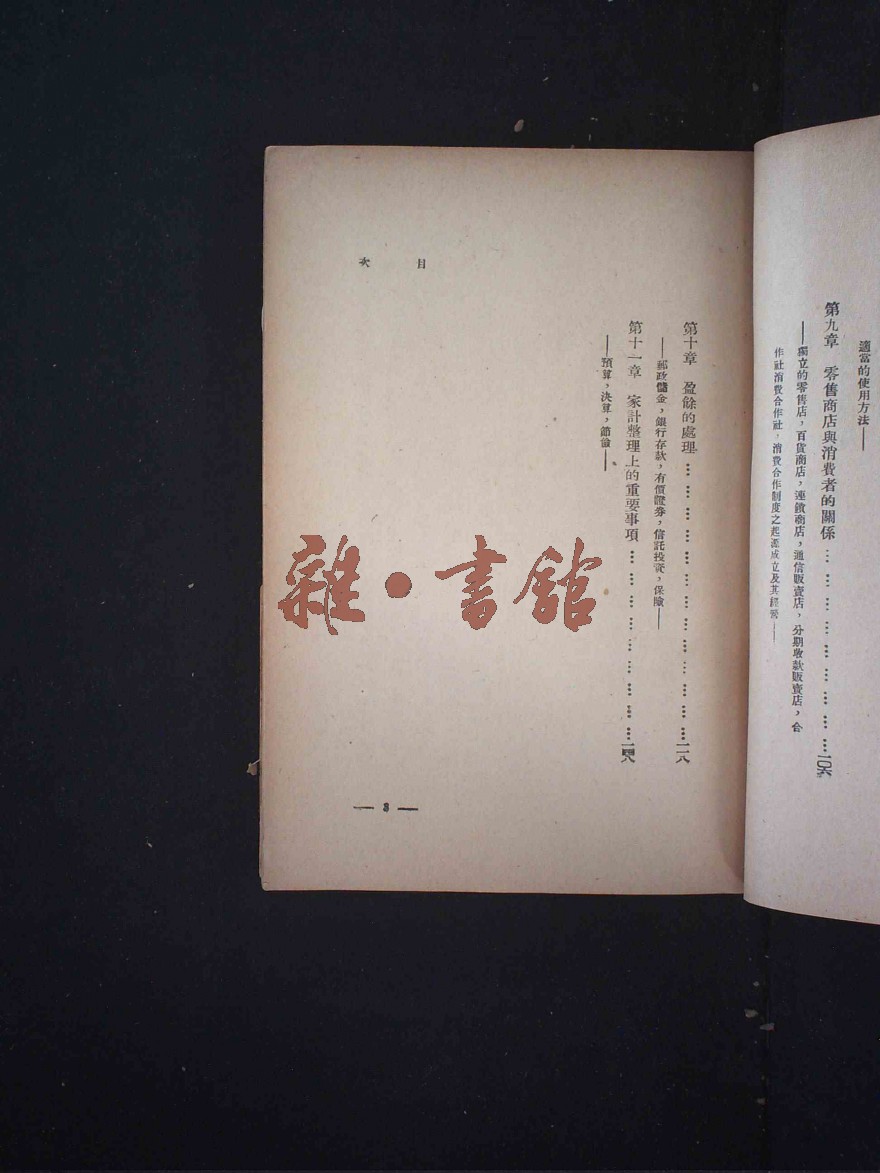 適當的使用方法——
第九章　零售商店與消費者的關係……………………………一〇六
——獨立的零售店，百貨商店，連鎖商店，通信販賣店，分期收款販賣店，合
作社消費合作社，消費合作制度之起源成立及其經營——
目　次
第十章　盈餘的處理……………………………一一八
——郵政儲金，銀行存款，有價證券，信託投資，保險——
第十一章　家計整理上的重要事項……………………一四八
——預算，決算，節論——
— 3 —
雜·書館